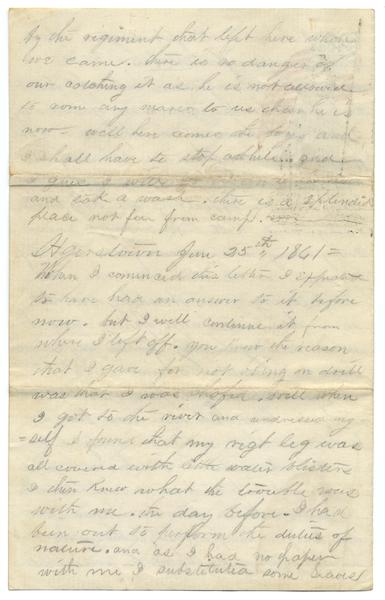 by the regiment that left here when
we came. there is no danger of
our catching it as he is not allowed
to come any nearer to us than he is
now - well here comes the boys and
I shall have to stop awhile and
I guess I will
and take a wash. there is a splendid
place not far from camp.
Agerstown June 25th 1861 =
When I cominced this letter I expected
to have had an answer to it before
now. but I will continue it from
where I left off. you know the reason
that I gave for not being on drill
was that I was chafed. well when
I got to the river and undressed my
=self I found that my rigt leg was
all covered with little water blisters
I then knew what the trouble was
with me. the day before I had
been out to perform the duties of
nature. and as I had no paper
with me I substituted some leaves